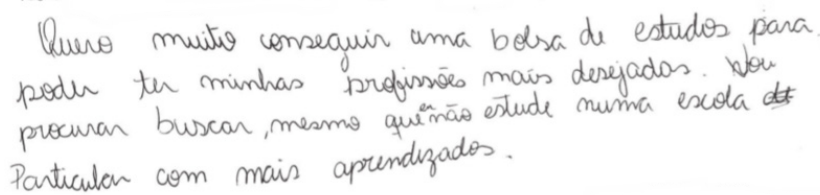 Quero muito conseguir uma bolsa de estudos para
poder ter minhas profissões mais desejadas. Vou
procurar buscar, mesmo que eu não estude numa escola
Particular com mais aprendizados.